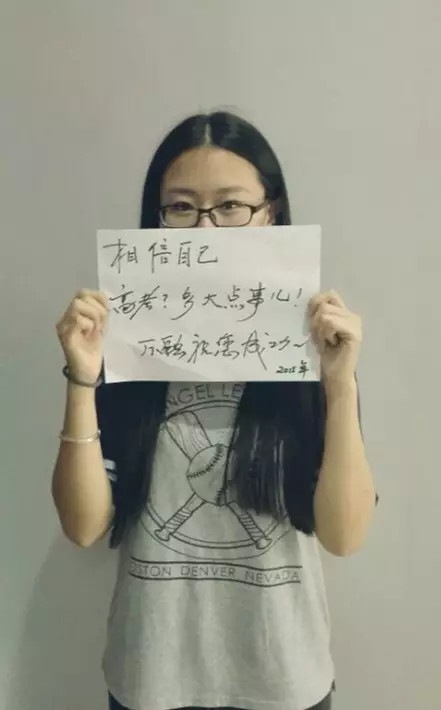 相信自己
高考？多大点事儿！
祝您成功~
2015年
NGEL LE
OSTON DENVER NEVADA